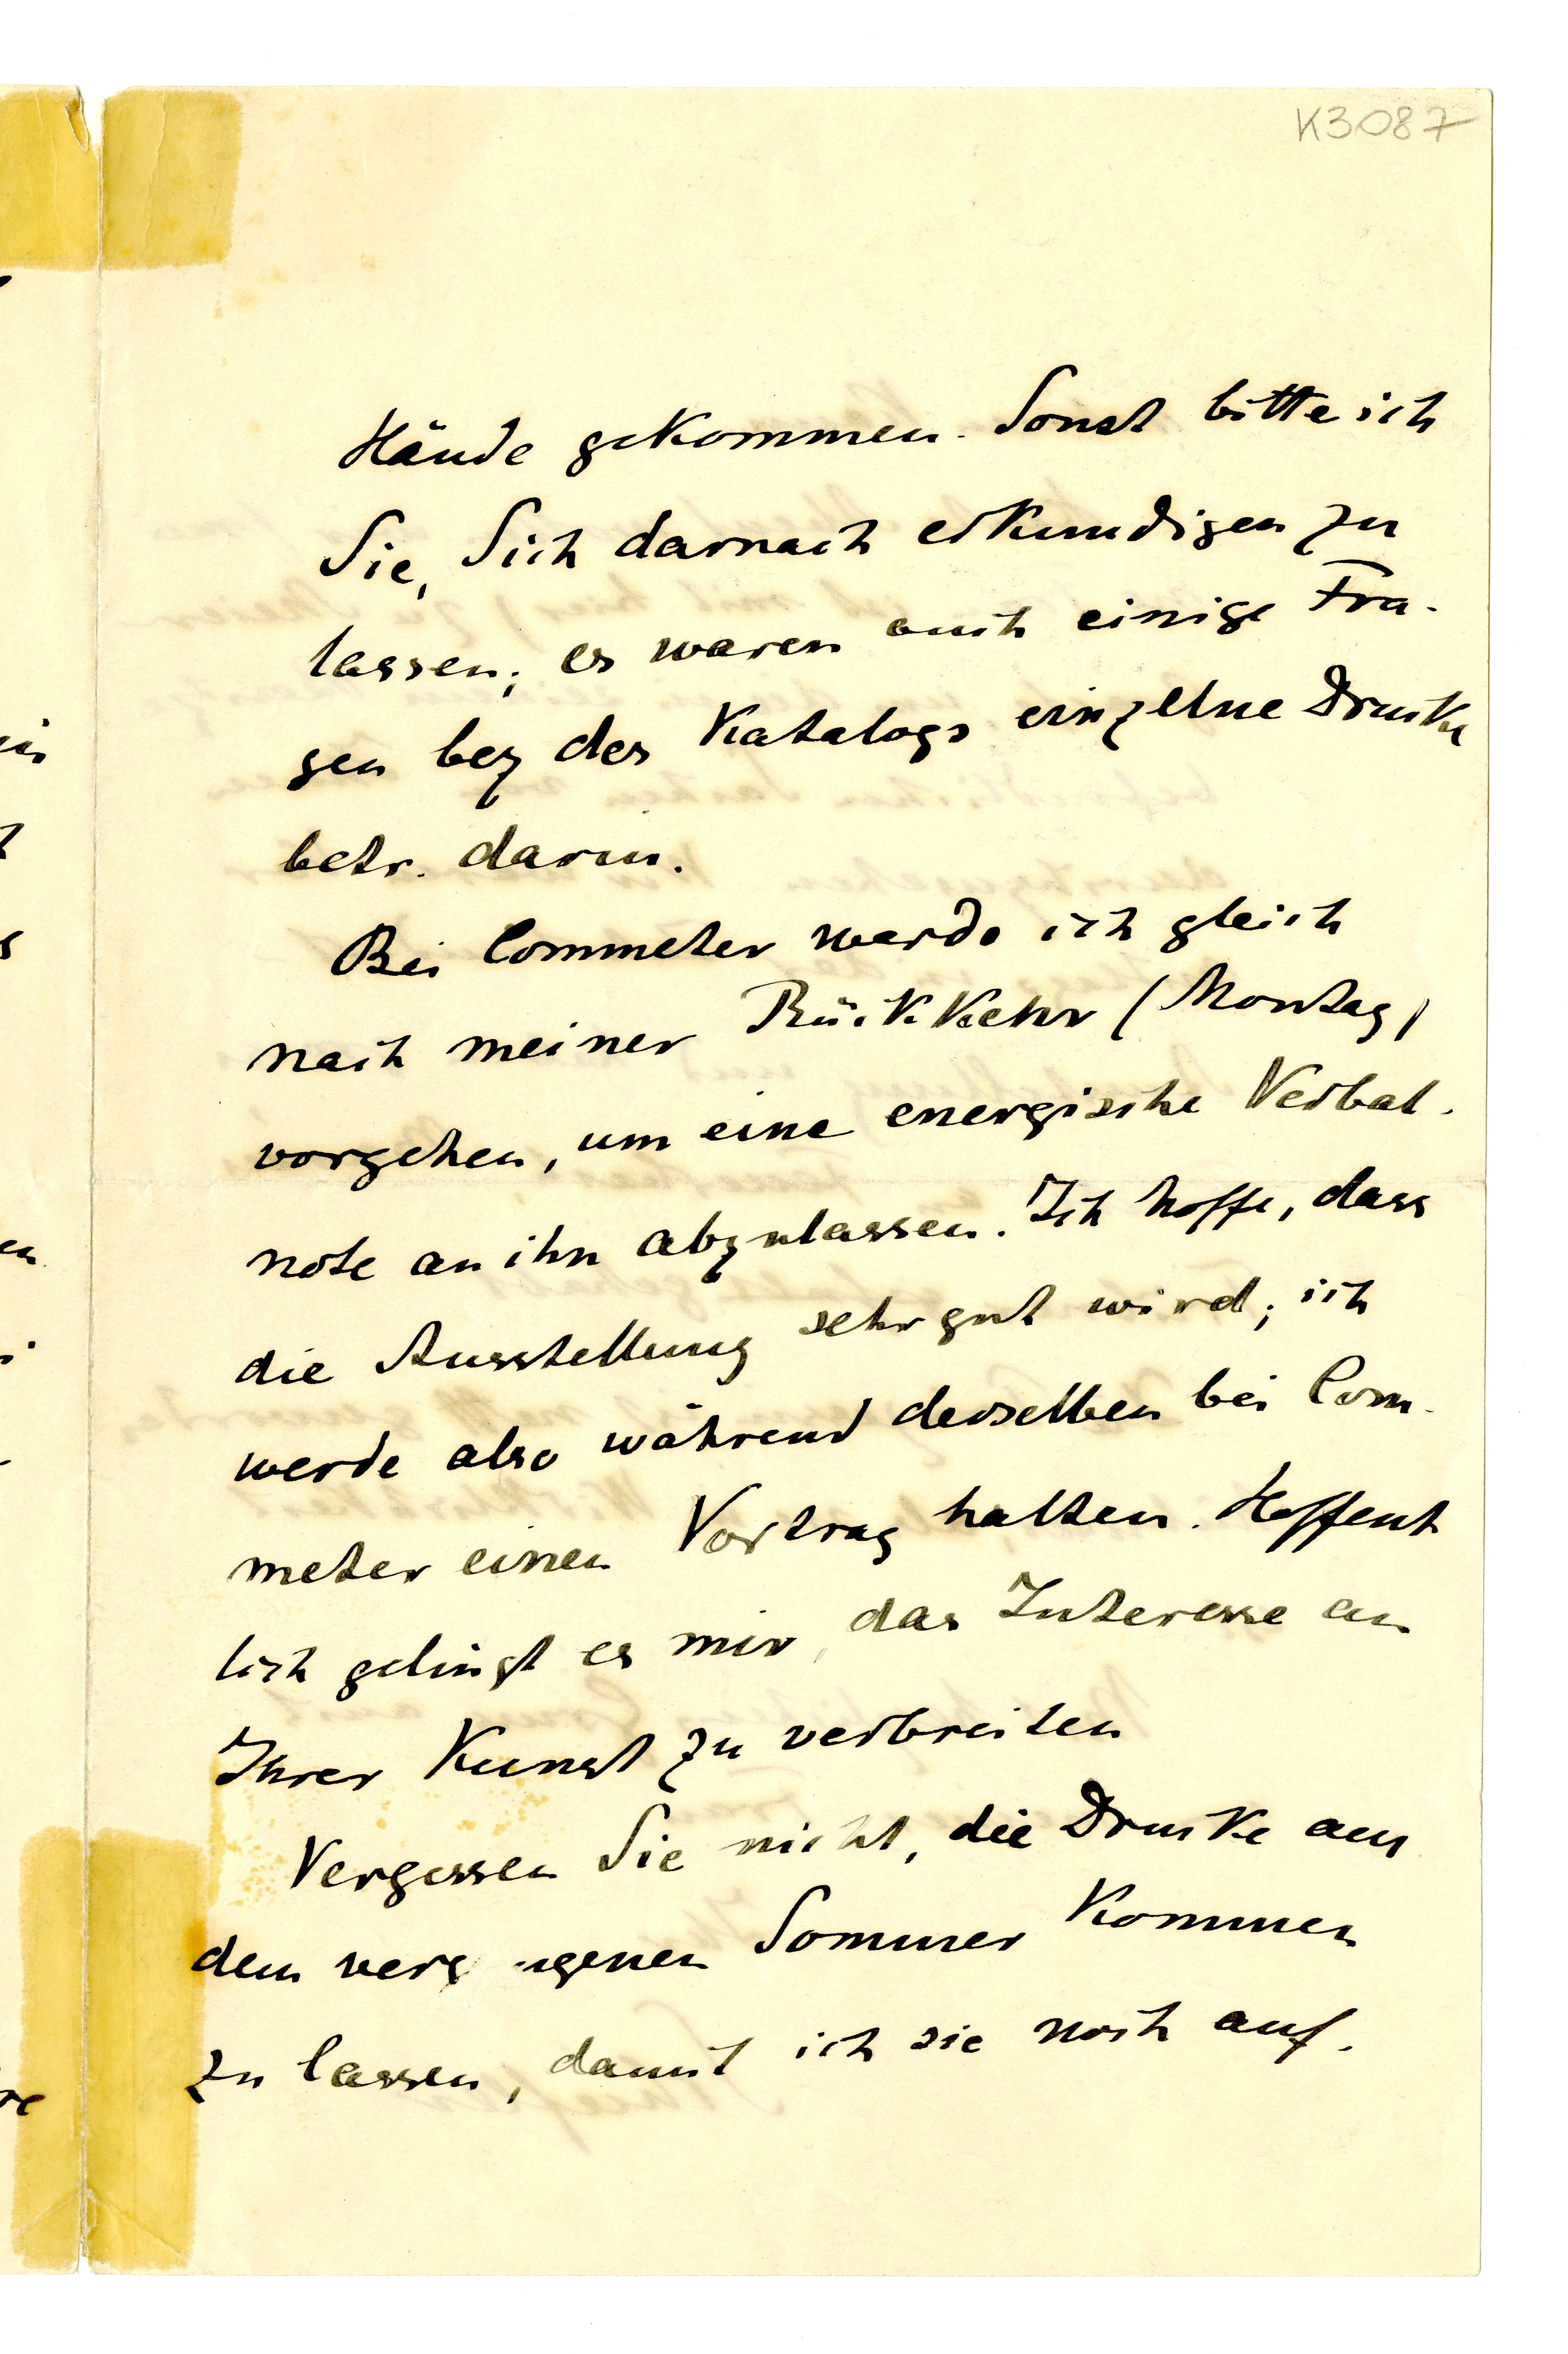 K3087
Hände gekommen. Sonst bitte ich
Sie, Sich darnach erkundigen zu
lassen; es waren auch einige Fra-
gen bez des Katalogs einzelne Drucke
betr. darin.
Bei Commeter werde ich gleich
nach meiner Rückkehr (Montag)
vorgehen, um eine energische Verbal-
note an ihn abzulassen. Ich hoffe, dass
die Ausstellung sehr gut wird; ich
werde also während derselben bei Com-
meter einen Vortrag halten. Hoffent
lich gelingt es mir, das Interesse an
Ihrer Kunst zu verbreiten
Vergessen Sie nicht, die Drucke aus
dem verg ngenen Sommer kommen
zu lassen, damit ich sie noch auf-